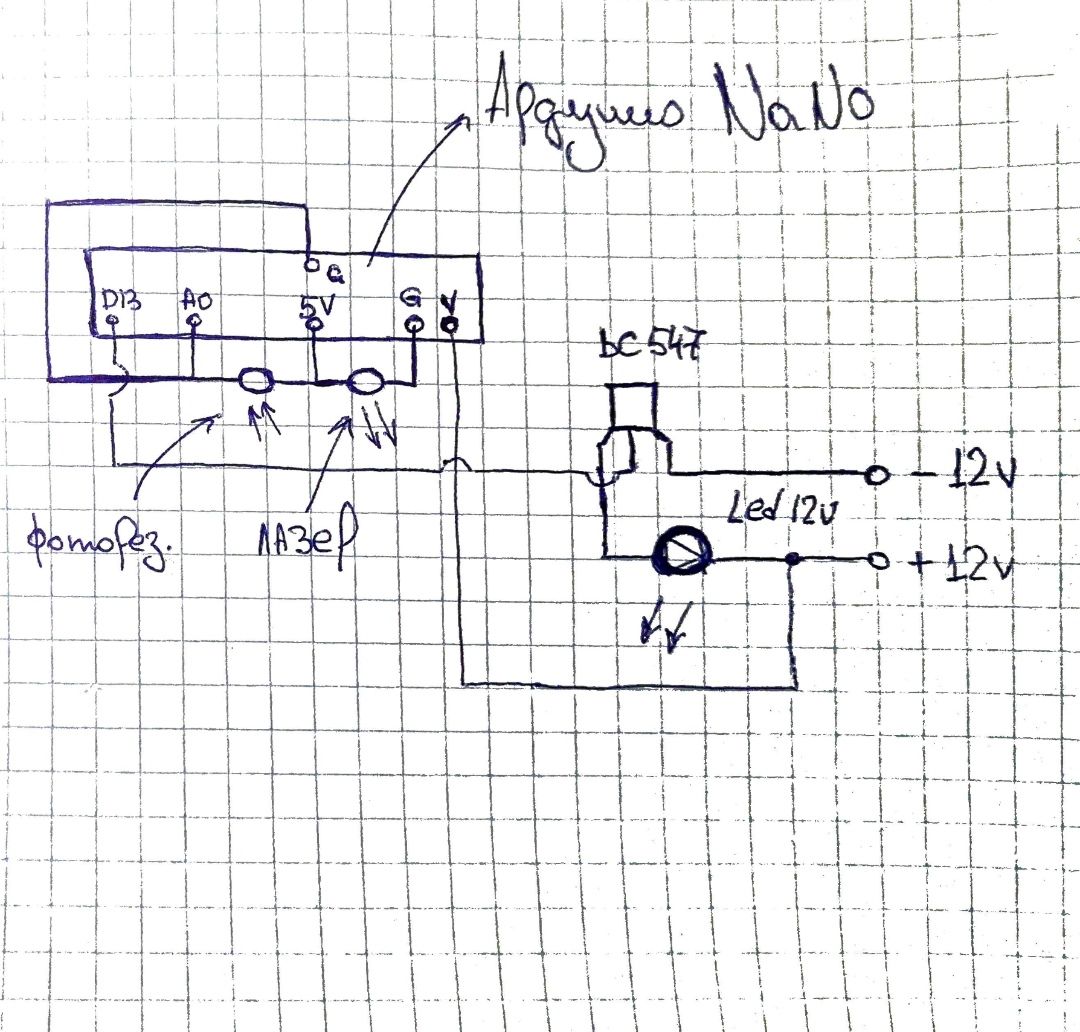 Ардуино NaNo
G
D13 A0 5V G V
bC 547
- 12v
Led 12v
+ 12v
фоторез. ЛАЗер